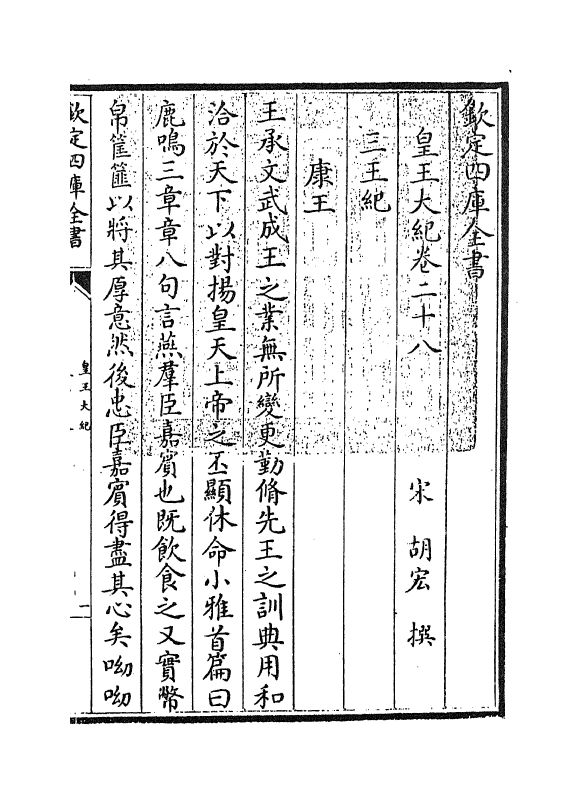 欽定四庫全書
皇王大紀卷二十八
宋 胡宏 撰
三王紀
康王
王承文武成王之業無所變更勤脩先王之訓典用和
洽於天下以對揚皇天上帝之丕顯休命小雅首篇曰
鹿鳴三章章八句言燕羣臣嘉賓也既飲食之又實幣
帛筐篚以將其厚意然後忠臣嘉賓得盡其心矣呦呦
欽定四庫全書
皇王大紀
一